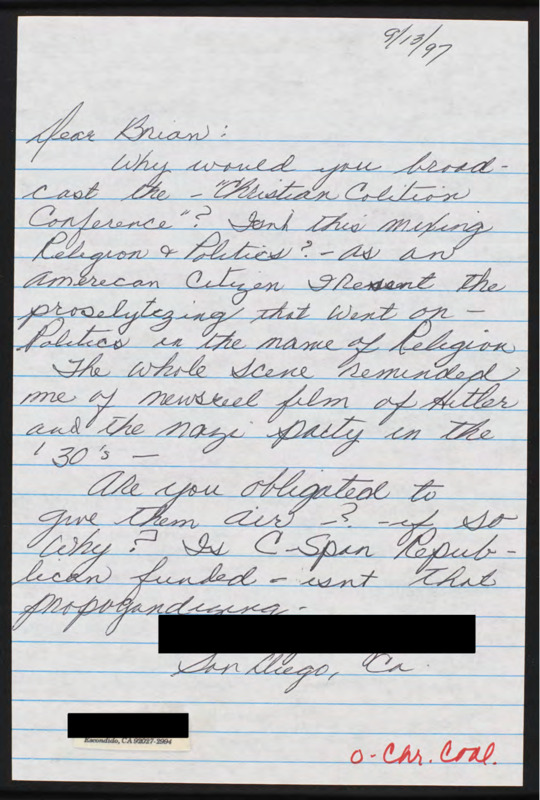 9/13/97
Dear Brian:
Why would you broad-
cast the - "Christian Colition
Conference"? Isnt this mixing
Religion & Politics? - as an
American Citizen I Resent the
proselytizing that went on -
Politics in the name of Religion
The whole scene reminded
me of newsreel film of Hitler
and the nazi party in the
'30's -
Are you obligated to
give them air - ? - if so
why? Is C-Span Repub-
lican funded - isnt that
propogandizing -
San Diego, Ca.
Escondido, CA 92027-2904
O - Chr. Coal.